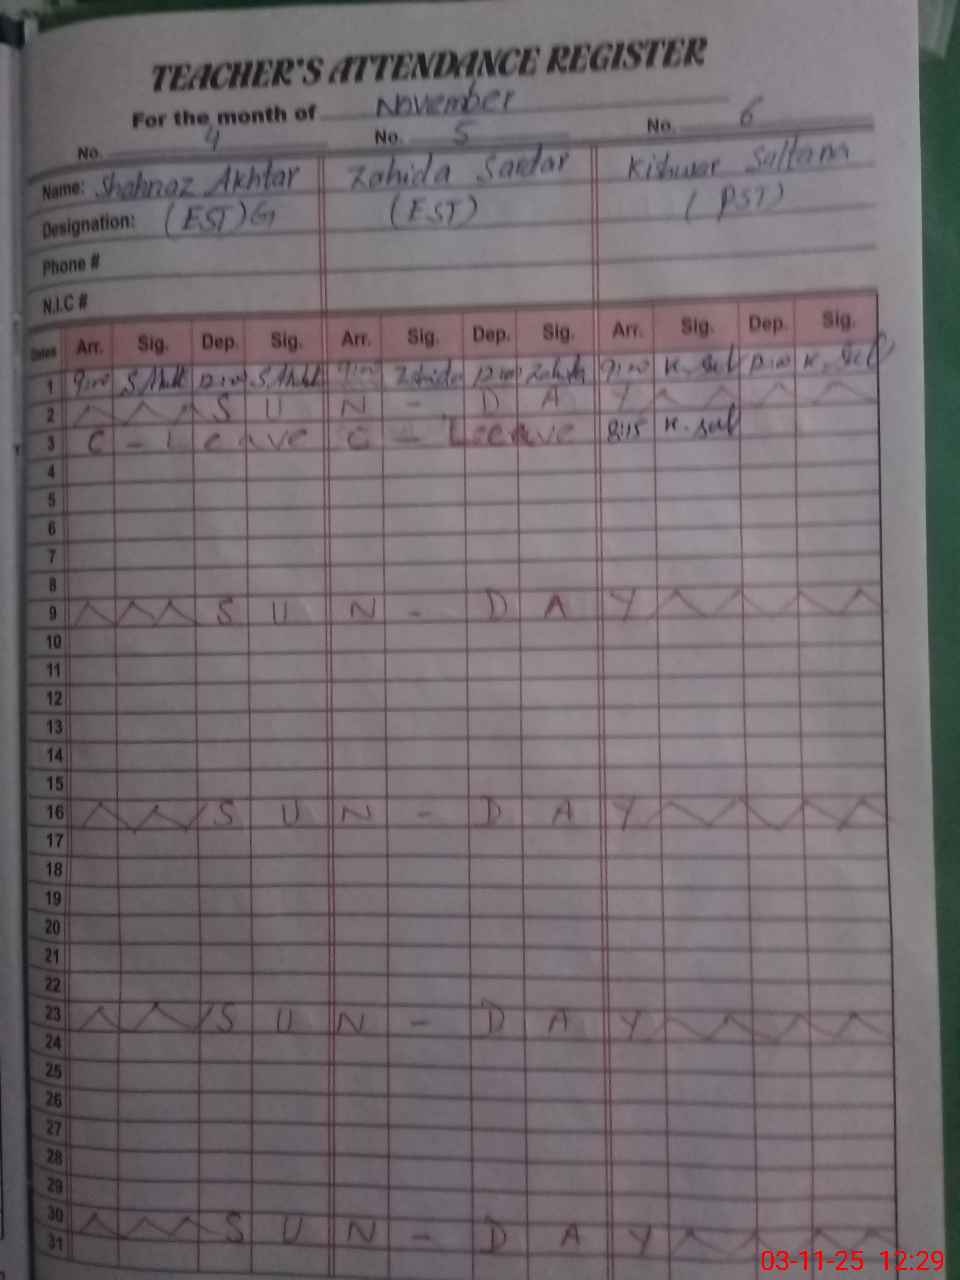 TEACHER'S ATTENDANCE REGISTER
For the month of November
No. 4 No. 5 No. 6
Name: Shahnaz Akhtar Zahida Sardar Kishwar Sultana
Designation: (EST)G (EST) (PST)
Phone #
N.I.C #
Dates Arr. Sig. Dep. Sig. Arr. Sig. Dep. Sig. Arr. Sig. Dep. Sig.
1 9:00 9:00 Zahida Zahida 9:00 K. Sul K. Sul
2 S U N - D A Y
3 C - Leave C - Leave 8:15 K. Sul
4
5
6
7
8
9 S U N - D A Y
10
11
12
13
14
15
16 S U N - D A Y
17
18
19
20
21
22
23 S U N - D A Y
24
25
26
27
28
29
30 S U N - D A Y
31
03-11-25 12:29